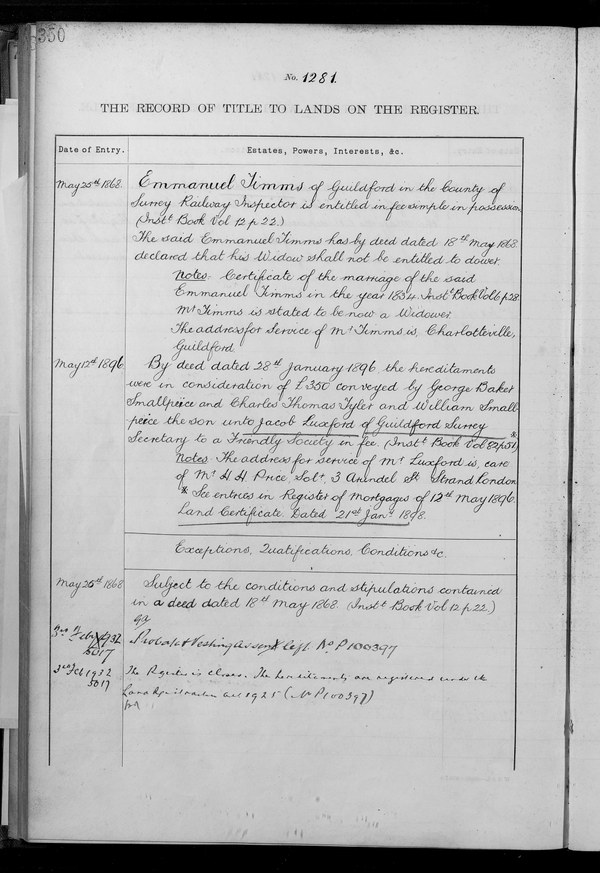 350
No. 1281.
THE RECORD OF TITLE TO LANDS ON THE REGISTER.
Date of Entry.
Estates, Powers, Interests, &c.
May 25th 1868.
Emmanuel Timms of Guildford in the County of
Surrey Railway Inspector is entitled in fee simple in possession
(Instt Book Vol 12 p 22.)
The said Emmanuel Timms has by deed dated 18th May 1868
declared that his Widow shall not be entitled to dower.
Notes. Certificate of the marriage of the said
Emmanuel Timms in the year 1834. Instt Book Vol 6 p 28.
Mr Timms is stated to be now a Widower.
The address for Service of Mr Timms is, Charlotteville,
Guildford.
May 12th 1896
By deed dated 28th January 1896 the hereditaments
were in consideration of £350 conveyed by George Baker
Smallpeice and Charles Thomas Tyler and William Small-
peice the son unto Jacob Luxford of Guildford Surrey
Secretary to a Friendly Society in fee. (Instt Book Vol 82 p 51)*
Notes The address for service of Mr Luxford is, care
of Mr H. H. Price, Solr, 3 Arundel St Strand London
* See entries in Register of Mortgages of 12th May 1896.
Land Certificate. Dated 21st Jany 1898.
Exceptions, Qualifications, Conditions &c.
May 25th 1868
Subject to the conditions and stipulations contained
in a deed dated 18th May 1868. (Instt Book Vol 12 p 22.)
3rd Feby 1932
5017
Probate & Vesting Assent left. No P100397
3rd Feb 1932
5017
The Register is closed. The hereditaments are registered under the
Land Registration Act 1925 (No P100397)